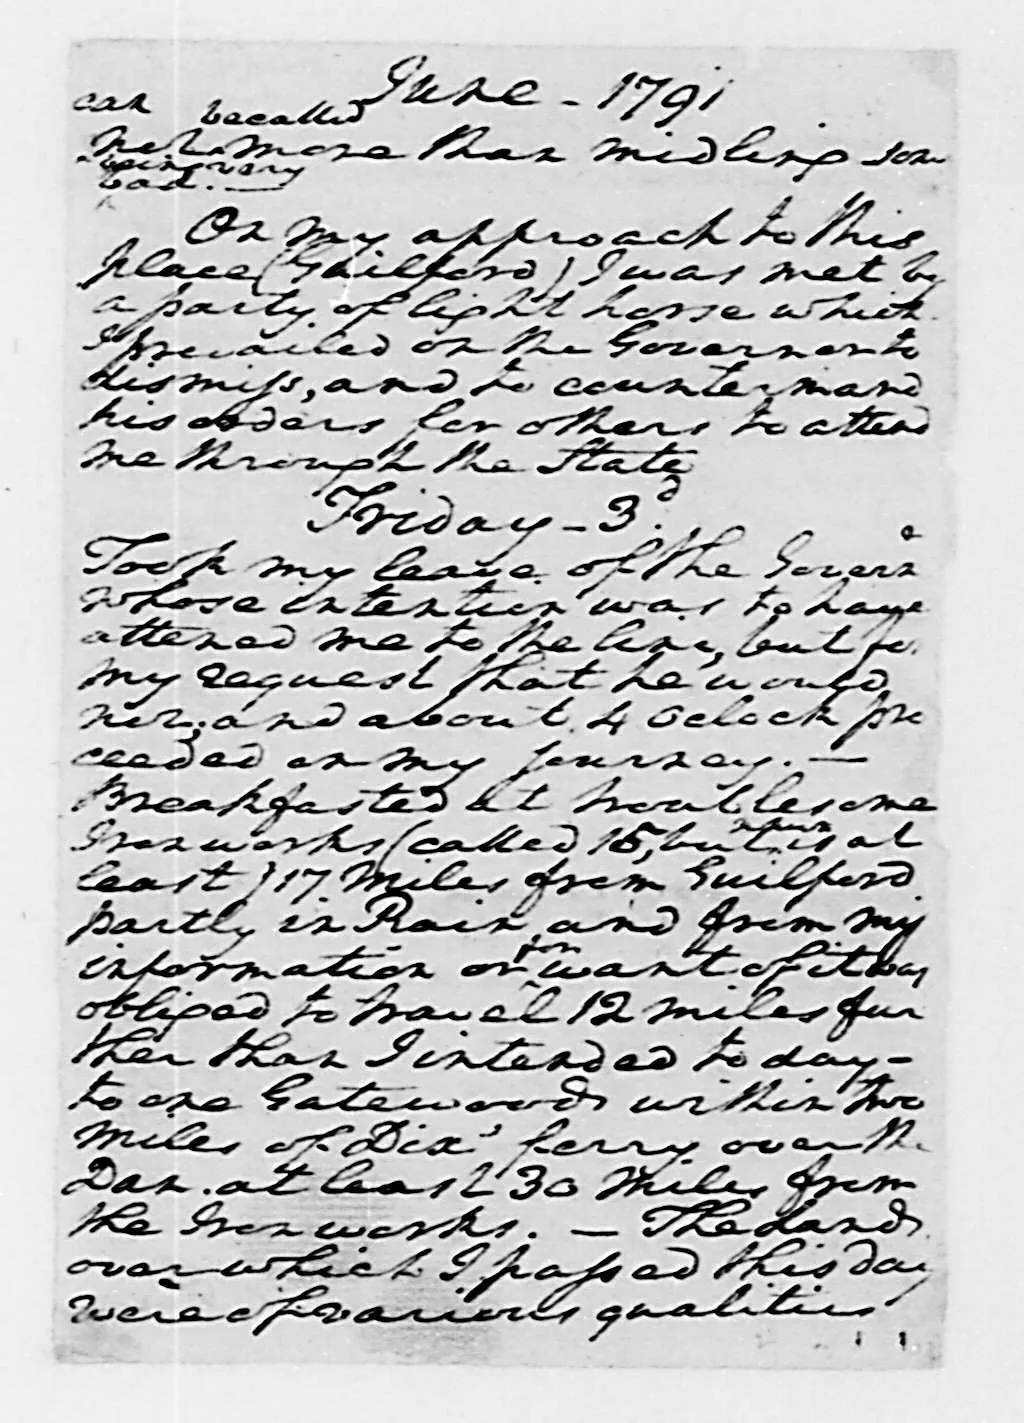 June - 1791
can be called
not more than midling some
being very
bad. —
On my approach to this
place (Guilford) I was met by
a party of light horse which
I prevailed on the Governor to
dismiss, and to countermand
his orders for others to attend
me through the State
Friday - 3d.
Took my leave of the Governr
whose intention was to have
attened me to the line, but for
my request that he would
not; and about 4 oclock pro
ceeded on my journey. —
Breakfasted at troublesome
Ironworks (called 15, but is at
least) 17 Miles from Guilford
partly in Rain and from my
information or for want of it was
obliged to travel 12 miles fur
ther than I intended to day —
to one Gatewoods within two
Miles of Dix' ferry over the
Dan. at least 30 Miles from
the Ironworks. — The Lands
over which I passed this day
were of various qualities